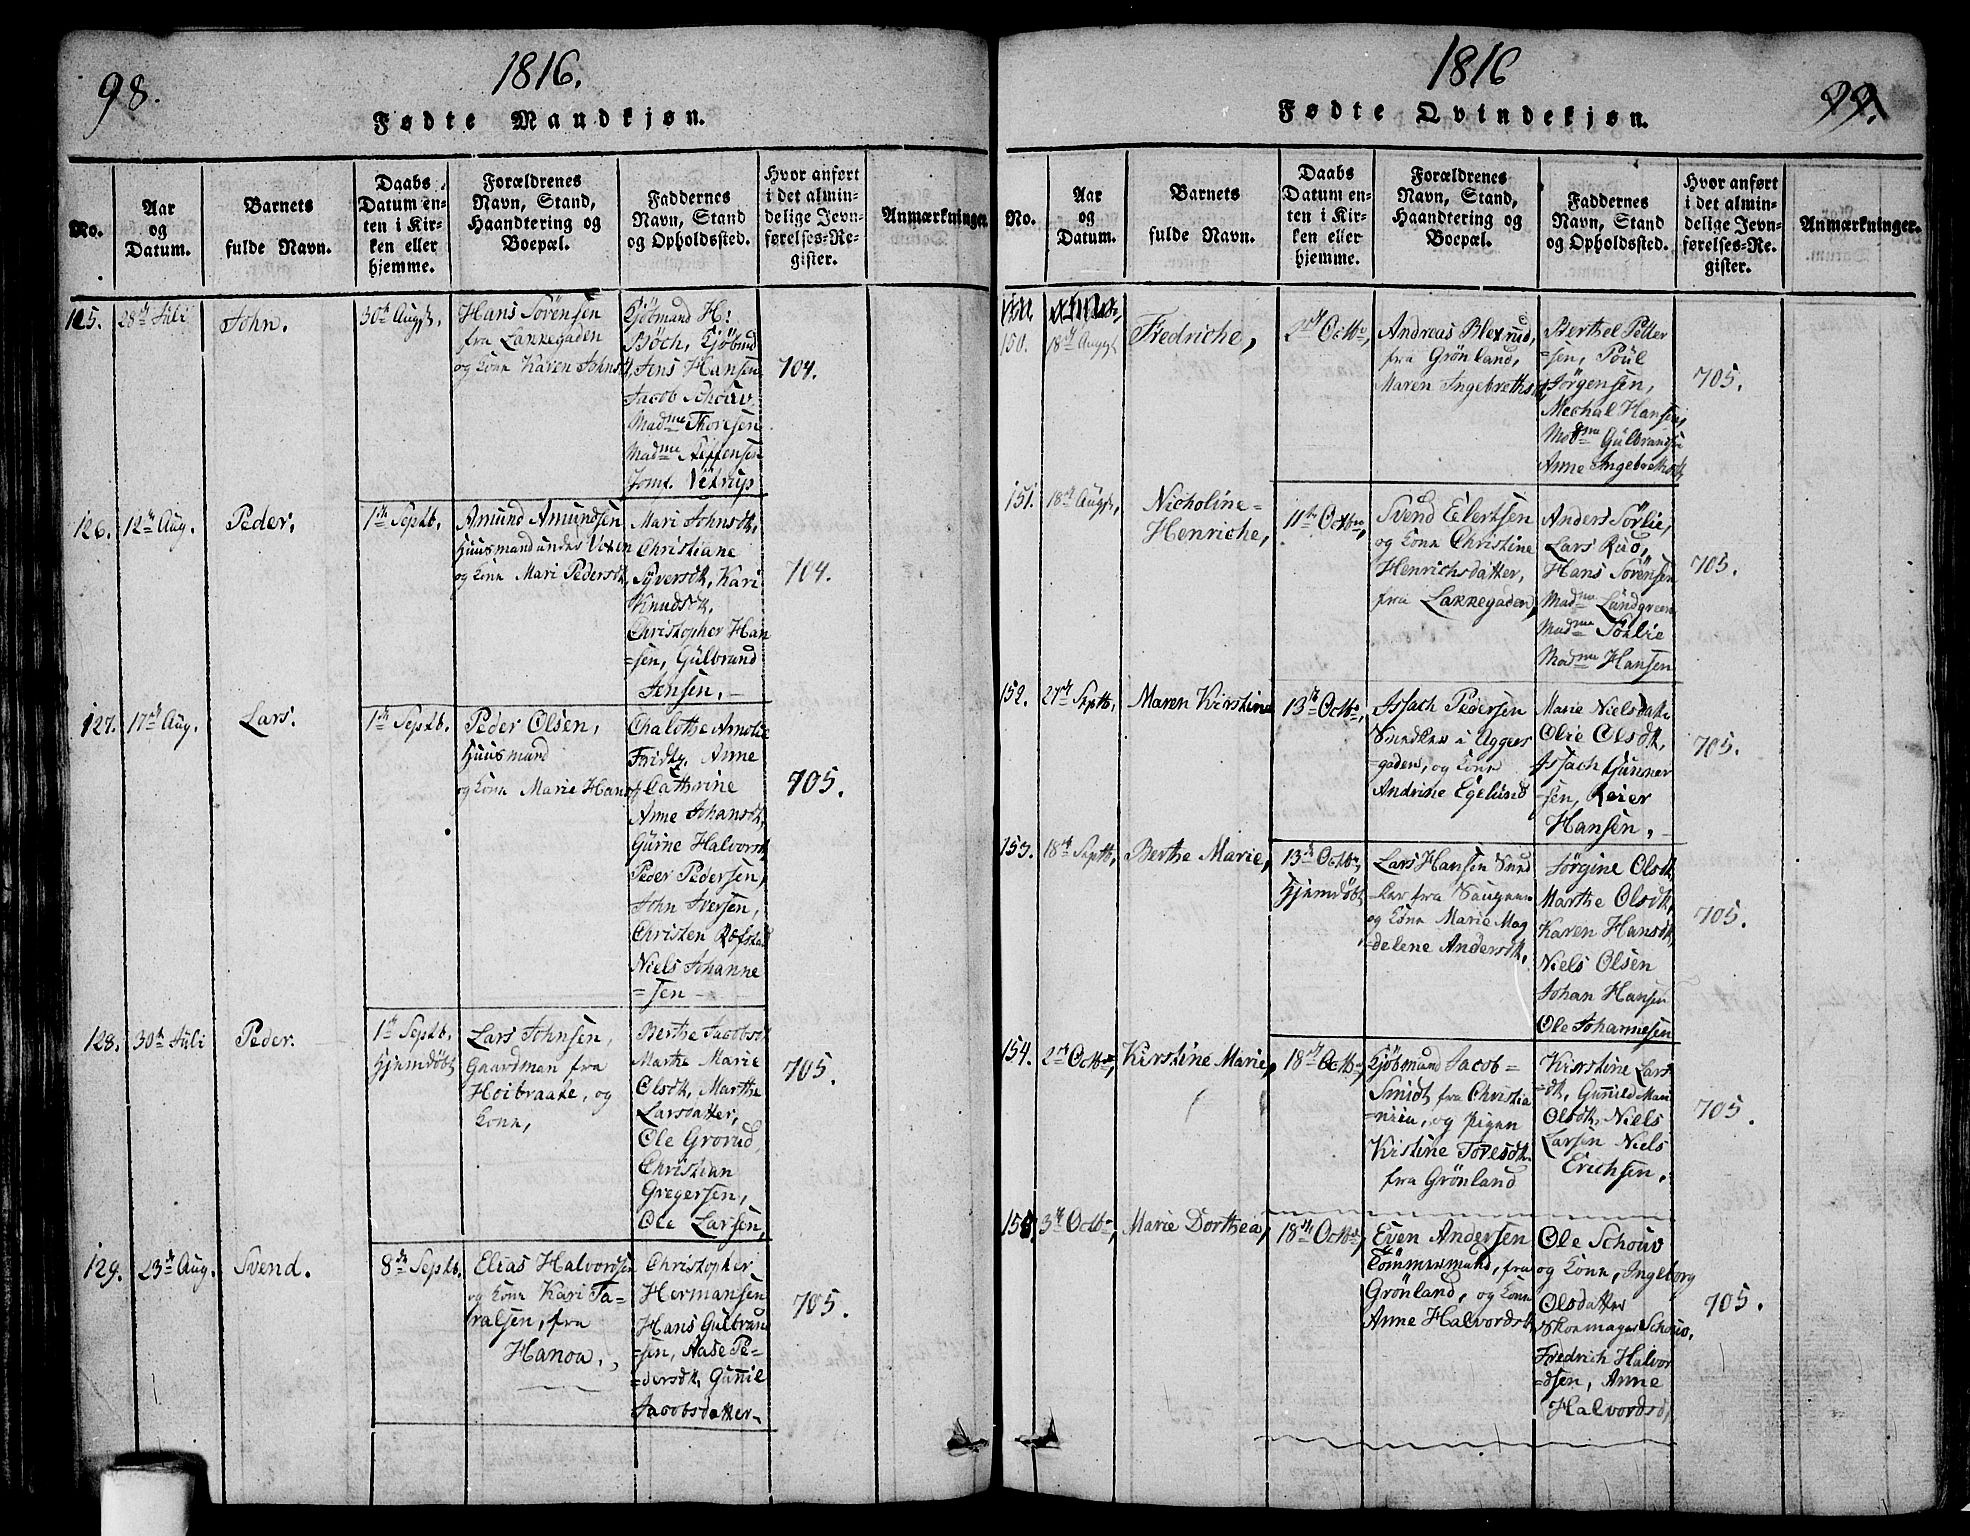 98.
1816.
Fødte Mandkjøn.
No.
Aar
og
Datum.
Barnets
fulde Navn.
Daabs
Datum en-
ten i Kir-
ken eller
hjemme.
Forældrenes
Navn, Stand,
Haandtering og
Boepæl.
Faddernes
Navn, Stand
og Opholdssted.
Hvor anført
i det almin-
delige Jevn-
førelses-Re-
gister.
Anmærkninger.
125. 28de Juli
John.
30te Augst.
Hans Sörensen
fra Lakkegaden
og Kone Karen Johnsdtr
Kjöbmand H:
Böch, Kjöbmd
Jens Hansen
Jacob Schouv
Madme Thoresen
Madme Steffensen
Jomf. Vetrup
704.
126. 12te Aug.
Peder.
1ste Septb.
Amund Amundsen
Huusmand under
og Kone Mari Pedersdtr
Mari Johnsdtr,
Christiane
Syversdtr, Kari
Knudsdtr,
Christopher Han
=sen, Gülbrand
Jensen.
704.
127. 17de Aug.
Lars.
1ste Septb.
Peder Olsen,
Huusmand
og Kone Marie Hansd
Chalotte Amalie
Anne
Cathrine
Anne Johansdtr,
Gurine Halvorsdtr
Peder Pedersen,
John Iversen,
Christen Røfstad
Niels Johanne
=sen
705.
128. 30te Juli
Peder.
1ste Septb.
Hjemdöbt
Lars Johnsen,
Gaardman fra
Hoibraate, og
Kone,
Berthe Jacobsd
Marthe Marie
Olsdtr, Marthe
Larsdatter,
Ole Grorud,
Christian
Gregersen,
Ole Larsen,
705.
129. 23de Aug.
Svend.
8de Septb.
Elias Halvorsen
og Kone Kari Ta=
ralsen, fra
Hanoa.
Christopher
Hermansen
Hans Gulbrand
=sen, Aase Pe=
=dersdtr, Gunnil
Jacobsdatter
705.
1816
99.
Fødte Qvindekjøn.
No.
Aar
og
Datum.
Barnets
fulde Navn.
Daabs
Datum en-
ten i Kir-
ken eller
hjemme.
Forældrenes
Navn, Stand,
Haandtering og
Boepæl.
Faddernes
Navn, Stand
og Opholdssted.
Hvor anført
i det almin-
delige Jevn-
førelses-Re-
gister.
Anmærkninger.
150. 18de Augst
Fredriche,
2den Octbr,
Andreas Blexrud,
fra Grönland,
Maren Ingebrethsdtr
Berthel Peder
=sen, Poül
Jörgensen,
Mechal Hansen,
Madme Gülbrandsen
Anne Ingebrethsdtr
705.
151. 18de Augst,
Nicholine=
Henriche,
11te Octbr,
Svend Eilertsen
og Kone Christine
Henrichsdatter,
fra Lakkegaden,
Anders Sörlie,
Lars Rud,
Hans Sörensen
Madme Lundgreen
Madme Sörlie
Madme Hansen
705.
152. 27de Septb,
Maren Kirstine
13de Octbr,
Issach Pedersen
Snedker i Agger=
=gaden, og Kone
Andrine Egelund
Marie Nielsdatr
Olie Olsdtr,
Issach Gunner
=sen, Reier
Hansen,
705.
153. 18de Septb,
Berthe Marie,
13de Octbr,
Hjemdöbt
Lars Hansen Sned
=ker fra Saugene
og Kone Marie Mag
=delene Andersdtr,
Jörgine Olsdtr
Marthe Olsdtr,
Karen Hansdtr,
Niels Olsen
Johan Hansen
Ole Johannesen
705.
154. 2den Octbr,
Kirstine Marie,
18de Octbr,
Kjöbmand Jacob=
Smidt fra Christia
=nia, og pigen
Kirstine Toresdtr.
fra Grönland
Kirstine Lars
=dtr, Gunild Mari
Olsdtr, Niels
Larsen Niels
Erichsen,
705.
155. 3die Octbr,
Marie Dorthea,
18de Octbr,
Even Andersen
Tömmermand, fra
Grönland, og Kone
Anne Halvordsdtr
Ole Schouv
og Kone, Ingeborg
Olsdatter
Skomager Schouv,
Fredrich Halvor
=dsen, Anne
Halvordsd,
705.